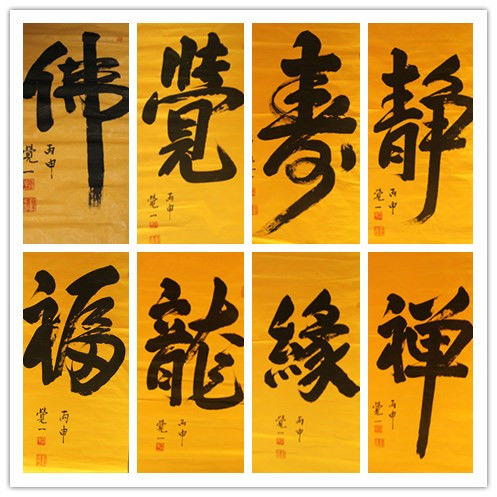 佛
丙申
覺一
覺
丙申
覺一
寿
丙申
覺一
静
丙申
覺一
福
丙申
覺一
龍
丙申
覺一
緣
丙申
覺一
禅
丙申
覺一